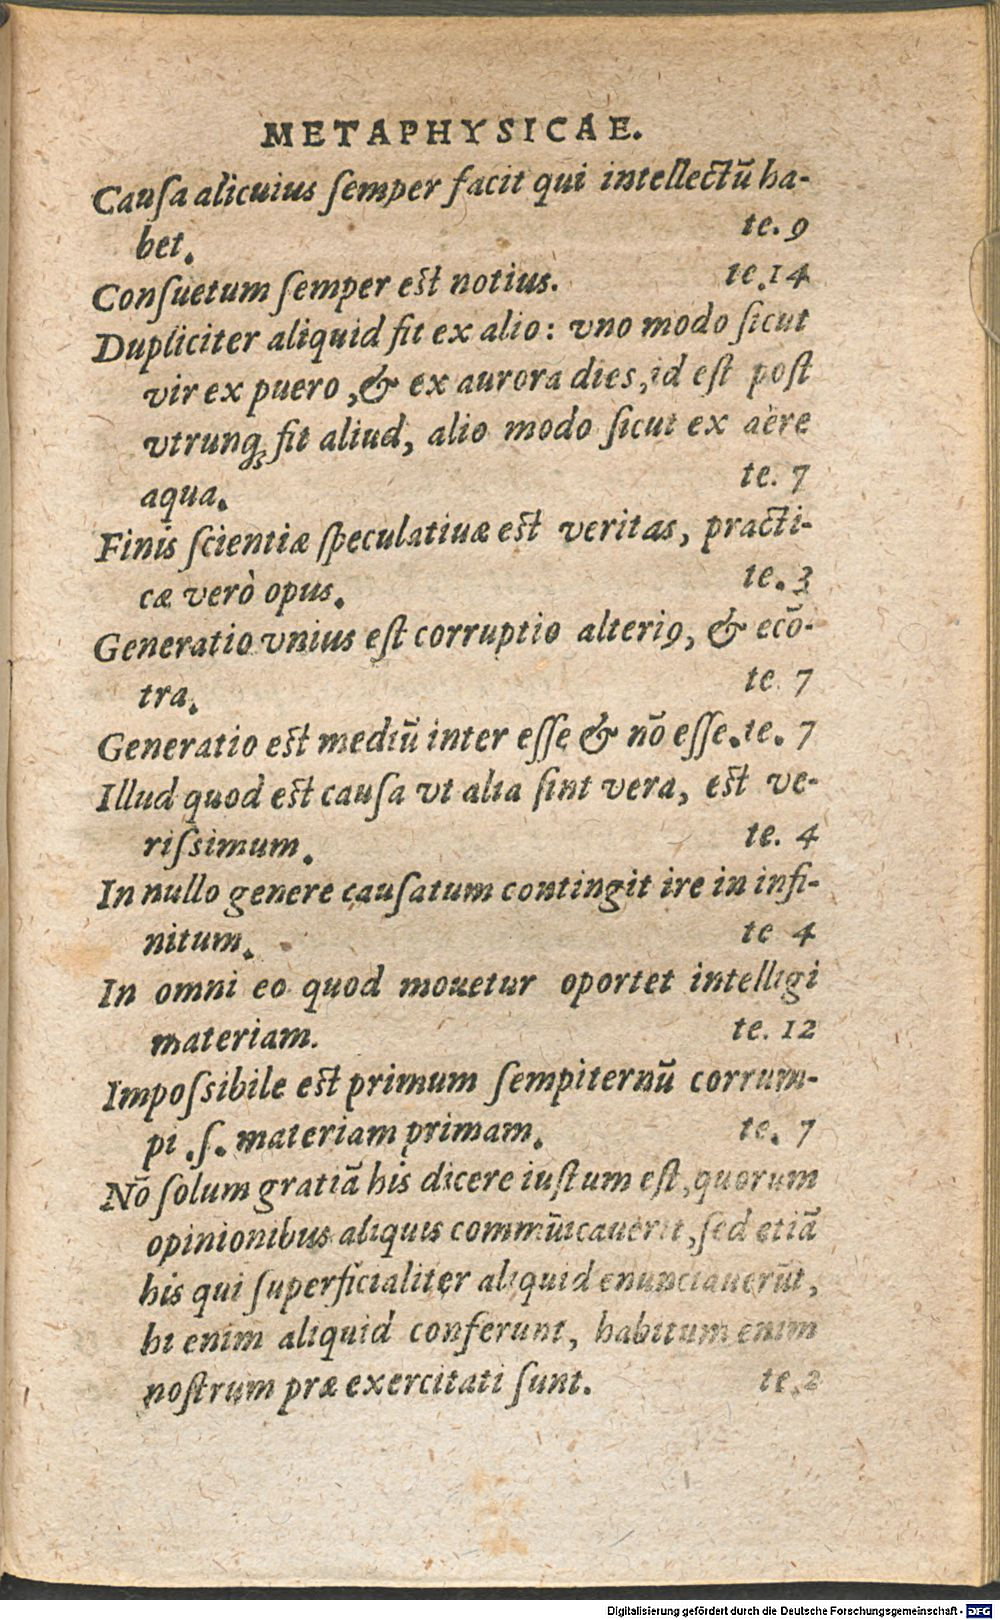 METAPHYSICAE.
Cauſa alicuius ſemper facit qui intellectũ ha-
bet. te. 9
Conſuetum ſemper eſt notius. te. 14
Dupliciter aliquid fit ex alio: vno modo ſicut
vir ex puero, & ex aurora dies, id eſt poſt
vtrunq́; fit aliud, alio modo ſicut ex aëre
aqua. te. 7
Finis ſcientiæ ſpeculatiuæ eſt veritas, practi-
cæ verò opus. te. 3
Generatio vnius eſt corruptio alteriꝰ, & ecõ-
tra. te. 7
Generatio eſt mediũ inter eſſe & nõ eſſe. te. 7
Illud quod eſt cauſa vt alia ſint vera, eſt ve-
riſsimum. te. 4
In nullo genere cauſatum contingit ire in infi-
nitum. te 4
In omni eo quod mouetur oportet intelligi
materiam. te. 12
Impoſsibile eſt primum ſempiternũ corrum-
pi .ſ. materiam primam. te. 7
Nõ ſolum gratiã his dicere iuſtum eſt, quorum
opinionibus aliquis commũicauerit, ſed etiã
his qui ſuperficialiter aliquid enunciauerũt,
hi enim aliquid conferunt, habitum enim
noſtrum præexercitati ſunt. te. 2
Digitalisierung gefördert durch die Deutsche Forschungsgemeinschaft - DFG